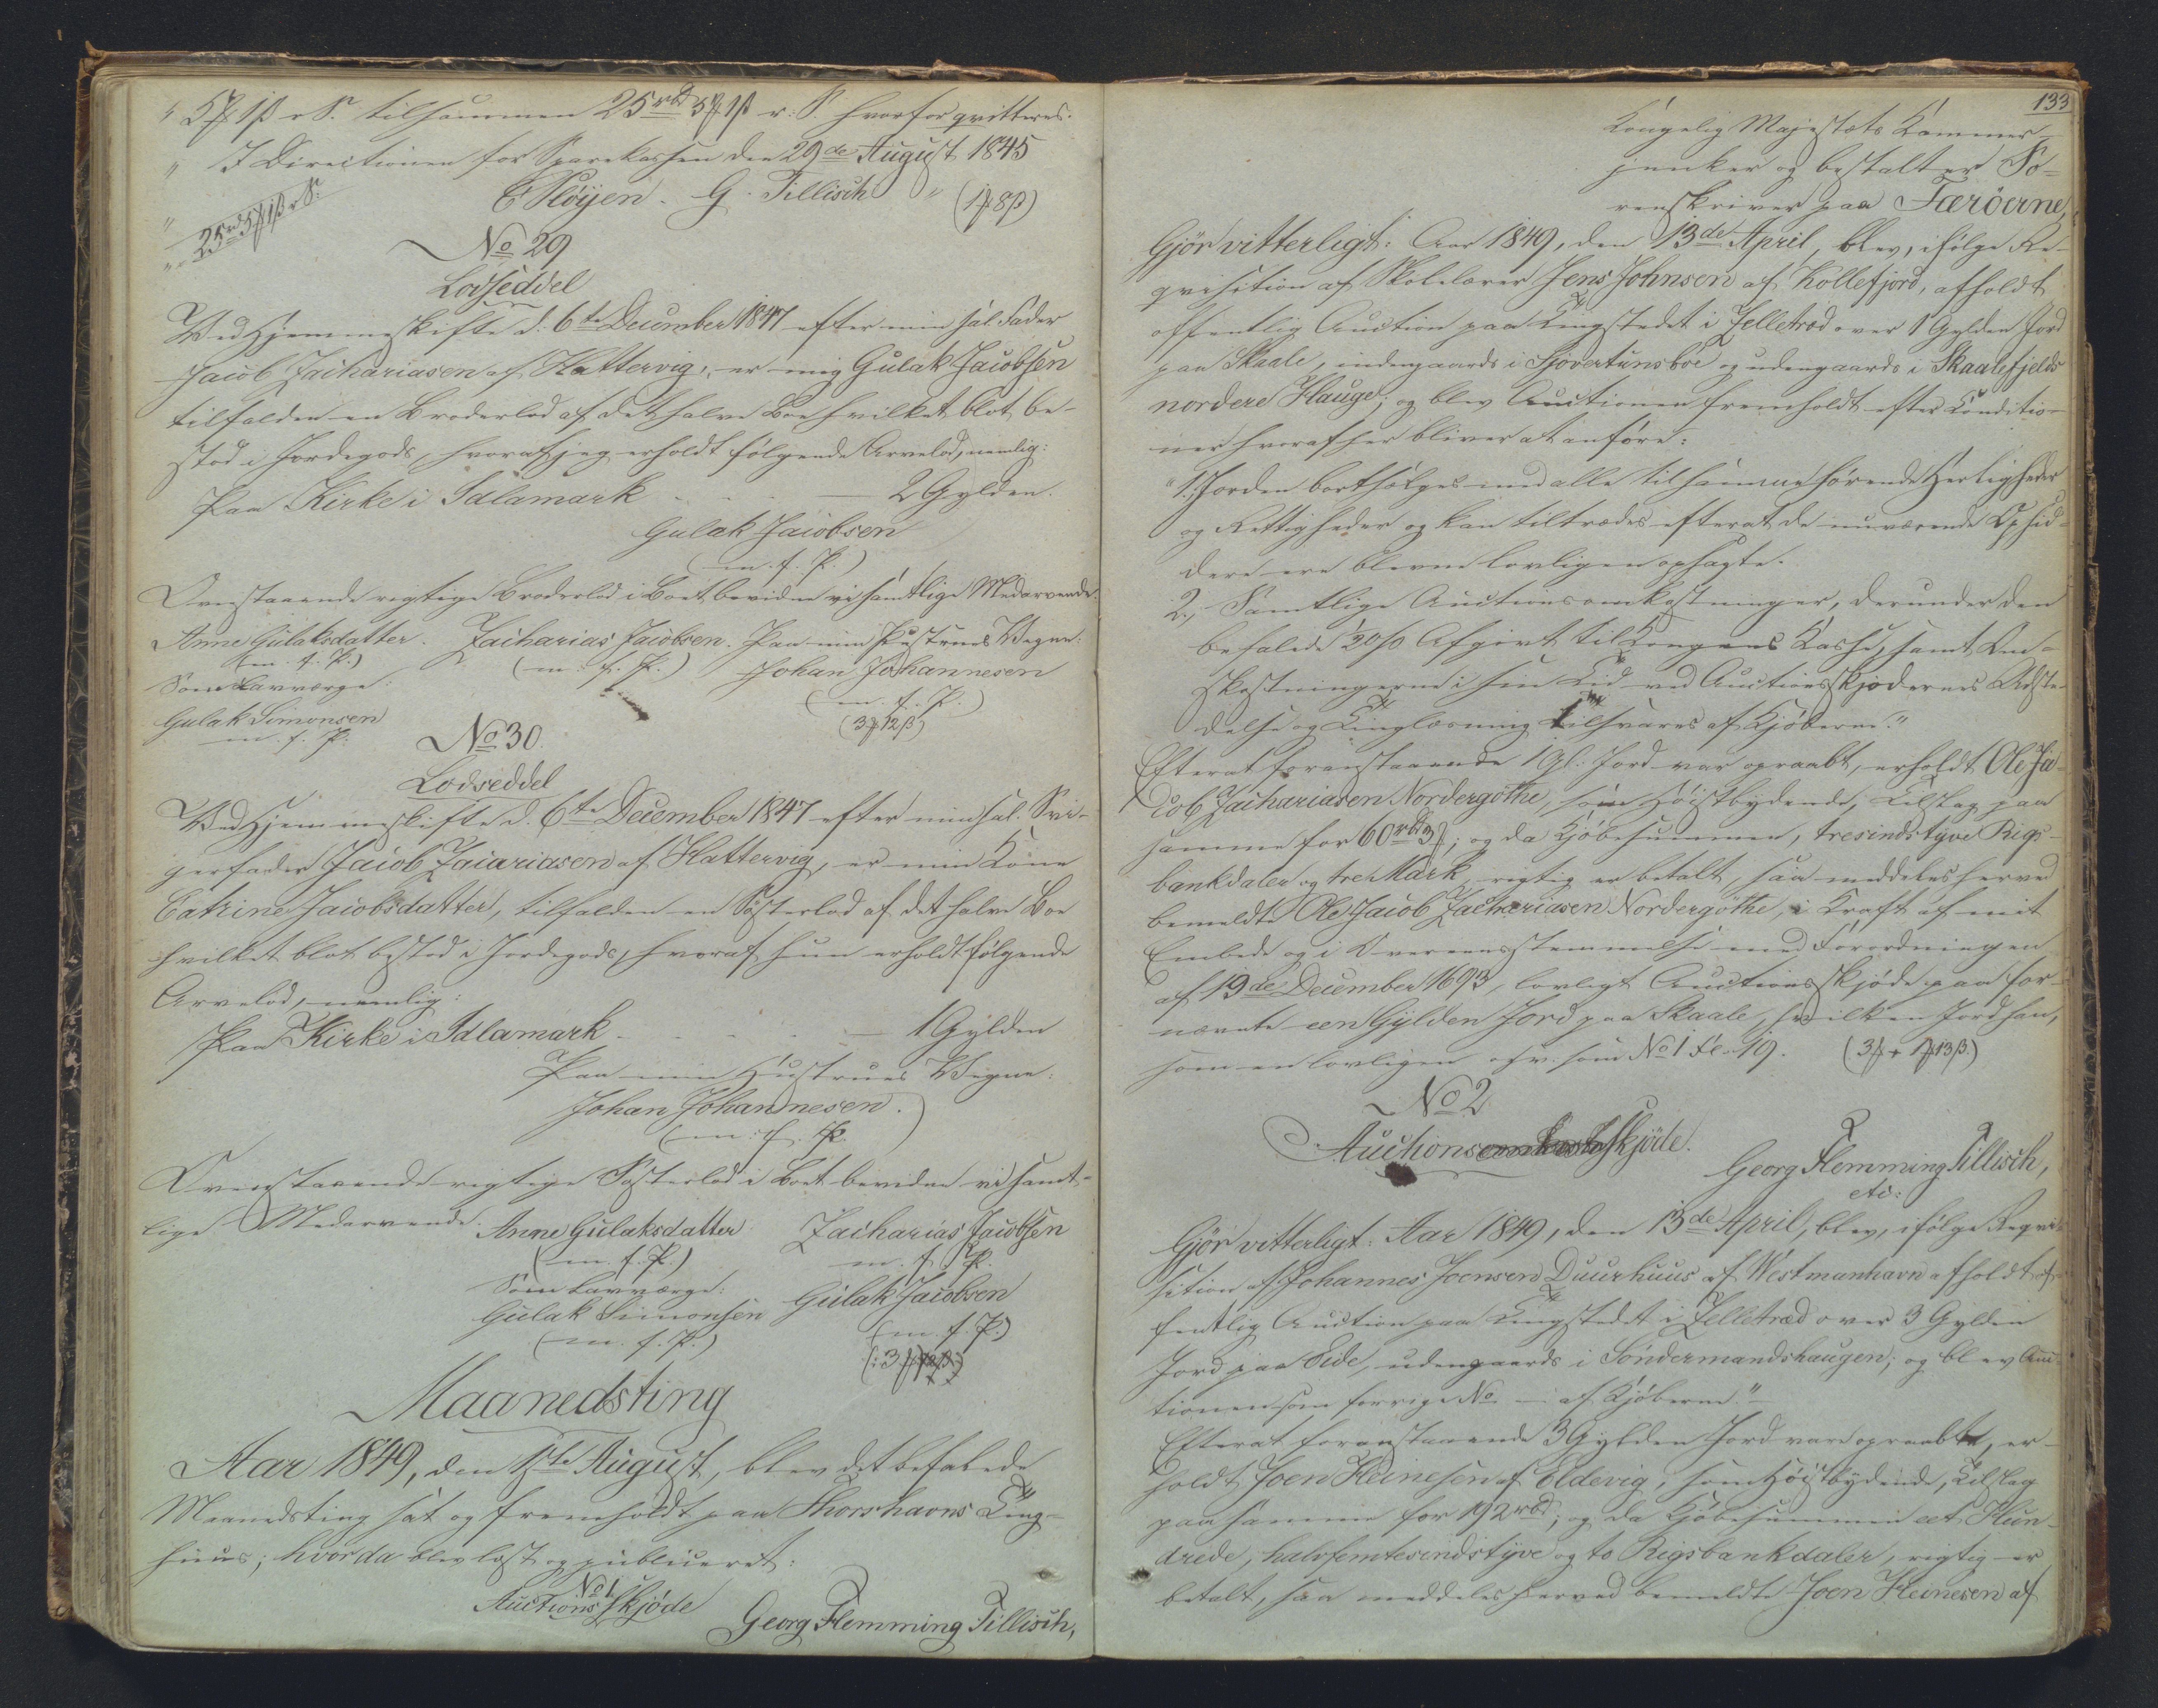 " 5 ₰ 1 ß r. S. tilsammen 25 rbd 5 ₰ 1 ß r: S. hvorfor qvitteres.
" I Directionen for Sparekassen den 29de August 1845
" C Pløyen. G. Tillisch " (1 ₰ 8 ß)
" 25 rbd 5 ₰ 1 ß r S:
No 29
Lodseddel
Ved Hjemmeskifte d: 6te December 1847 efter min sal. Fader
Jacob Zachariasen af Hattervig, er mig Gulak Jacobsen
tilfalden en Broderlod af det halve Boe hvilket blot be-
stod i Jordegods, hvoraf jeg erholdt følgende Arvelod, nemlig:
Paa Kirke i Idlamark - - - 2 Gylden.
Gulak Jacobsen
(m. f. P.)
Ovenstaaende rigtige Broderlod i Boet bevidne vi samtlige Medarvende.
Anne Gulaksdatter. Zacharias Jacobsen. Paa min Hustrues Vegne:
(m. f. P.) (m. f. P.) Johan Johannesen
Som Lavværge: (m. f. P.)
Gulak Simonsen (3 ₰ 12 ß)
m. f. P.
No 30.
Lodseddel
Ved Hjemmeskifte d. 6te December 1847 efter min sal. Svi-
gerfader Jacob Zacariasen af Hattervig, er min Kone
Catrine Jacobsdatter, tilfalden en Søsterlod af det halve Boe
hvilket blot bestod i Jordegods, hvoraf hun erholdt følgende
Arvelod, nemlig:
Paa Kirke i Idlamark - - - 1 Gylden
Paa min Hustrues Vegne:
Johan Johannesen.
(m. f. P.)
Ovenstaaende rigtige Søsterlod i Boet bevidne vi samt-
lige Medarvende. Anne Gulaksdatter. Zacharias Jacobsen
(m. f. P.) m. f. P.
Som Lavværge: Gulak Jacobsen
Gulak Simonsen (m. f. P.)
(m. f. P.) (: 3 ₰
Maanedsting
Aar 1849, den 1ste August, blev det befalede
Maanedsting sat og fremholdt paa Thorshavns Ting-
huus; hvorda blev læst og publiceret:
No 1
Auctionsskjøde
Georg Flemming Tillisch,
133
Kongelig Majestæts Kammer-
junker og bestalter So-
renskriver paa Færöerne,
Gjör vitterligt: Aar 1849, den 13de April, blev, ifølge Re-
qvisition af Skolelærer Jens Johnsen af Kollefjord, afholdt
offentlig Auction paa Tingstedet i Zelletræd over 1 Gylden Jord
paa Skaale, indengaards i Sjovertunsböe og udengaards i Skaalefjelds
nordere Hauge; og blev Auctionen fremholdt efter Conditio-
ner hvoraf her bliver at anføre:
"1, Jorden bortsælges med alle tilsammenhørende Herligheder
og Rettigheder og kan tiltrædes efterat de nuværende Opsid-
dere ere blevne lovligen opsagte.
2., Samtlige Auctionsomkostninger, derunder den
befalede 1/2 0/0 Afgivt til Kongens Kasse, samt Om-
kostningerne i sin Tid ved Auctionsskjødernes Udste-
delse og Tinglæsning tilsvares af Kjøberne."
Efterat foranstaaende 1 Gl. Jord var opraabt, erholdt Ole Ja-
cob Zachariasen Nordergöthe, som höistbydende, Tilslag paa
samme for 60 rbd 3 ₰; og da Kjøbesummen, tresindstyve Rigs-
bankdaler og tre Mark, rigtig er betalt, saa meddeles herved
bemeldte Ole Jacob Zachariasen Nordergöthe, i Kraft af mit
Embede og i Overeensstemmelse med Forordningen
af 19de December 1693, lovligt Auctionsskjøde paa for-
nævnte een Gylden Jord paa Skaale, hvilken Jord han,
som en lovligen osv. som No 1 Fol. 19. (3 ₰ + 1 ₰ 13 ß.)
No 2
Auctionsskjöde.
Georg Flemming Tillisch,
etc:
Gjör vitterligt: Aar 1849, den 13de April, blev, ifølge Reqvi-
sition af Johannes Joensen Duurhuus af Westmanhavn afholdt of-
fentlig Auction paa Tingstedet i Zelletræd over 3 Gylden
Jord paa Eide, udengaards i Söndermandshaugen; og blev Auc-
tionen som forrige No — af Kjøberne."
Efterat foranstaaende 3 Gylden Jord vare opraabte, er-
holdt Joen Heinesen af Eldevig, som Höistbydende, Tilslag
paa samme for 192 rbd; og da Kjøbesummen eet Hun-
drede, halvfemtesindstyve og to Rigsbankdaler, rigtig er
betalt, saa meddeles herved bemeldte Joen Heinesen af